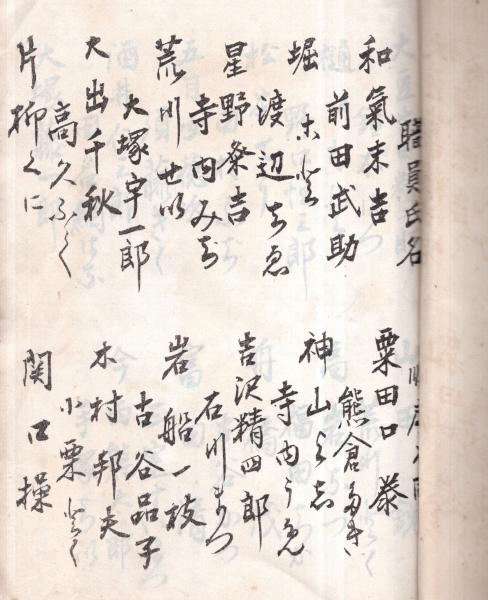 職員氏名
和氣末吉
前田武助
堀
渡辺
星野粂吉
寺内みち
荒川せい
大塚宇一郎
大出千秋
高久ふく
片柳くに
粟田口
熊倉
神山よし
寺内うめ
吉沢精四郎
石川まつ
岩船一枝
古谷品子
木村邦夫
小栗
関口操